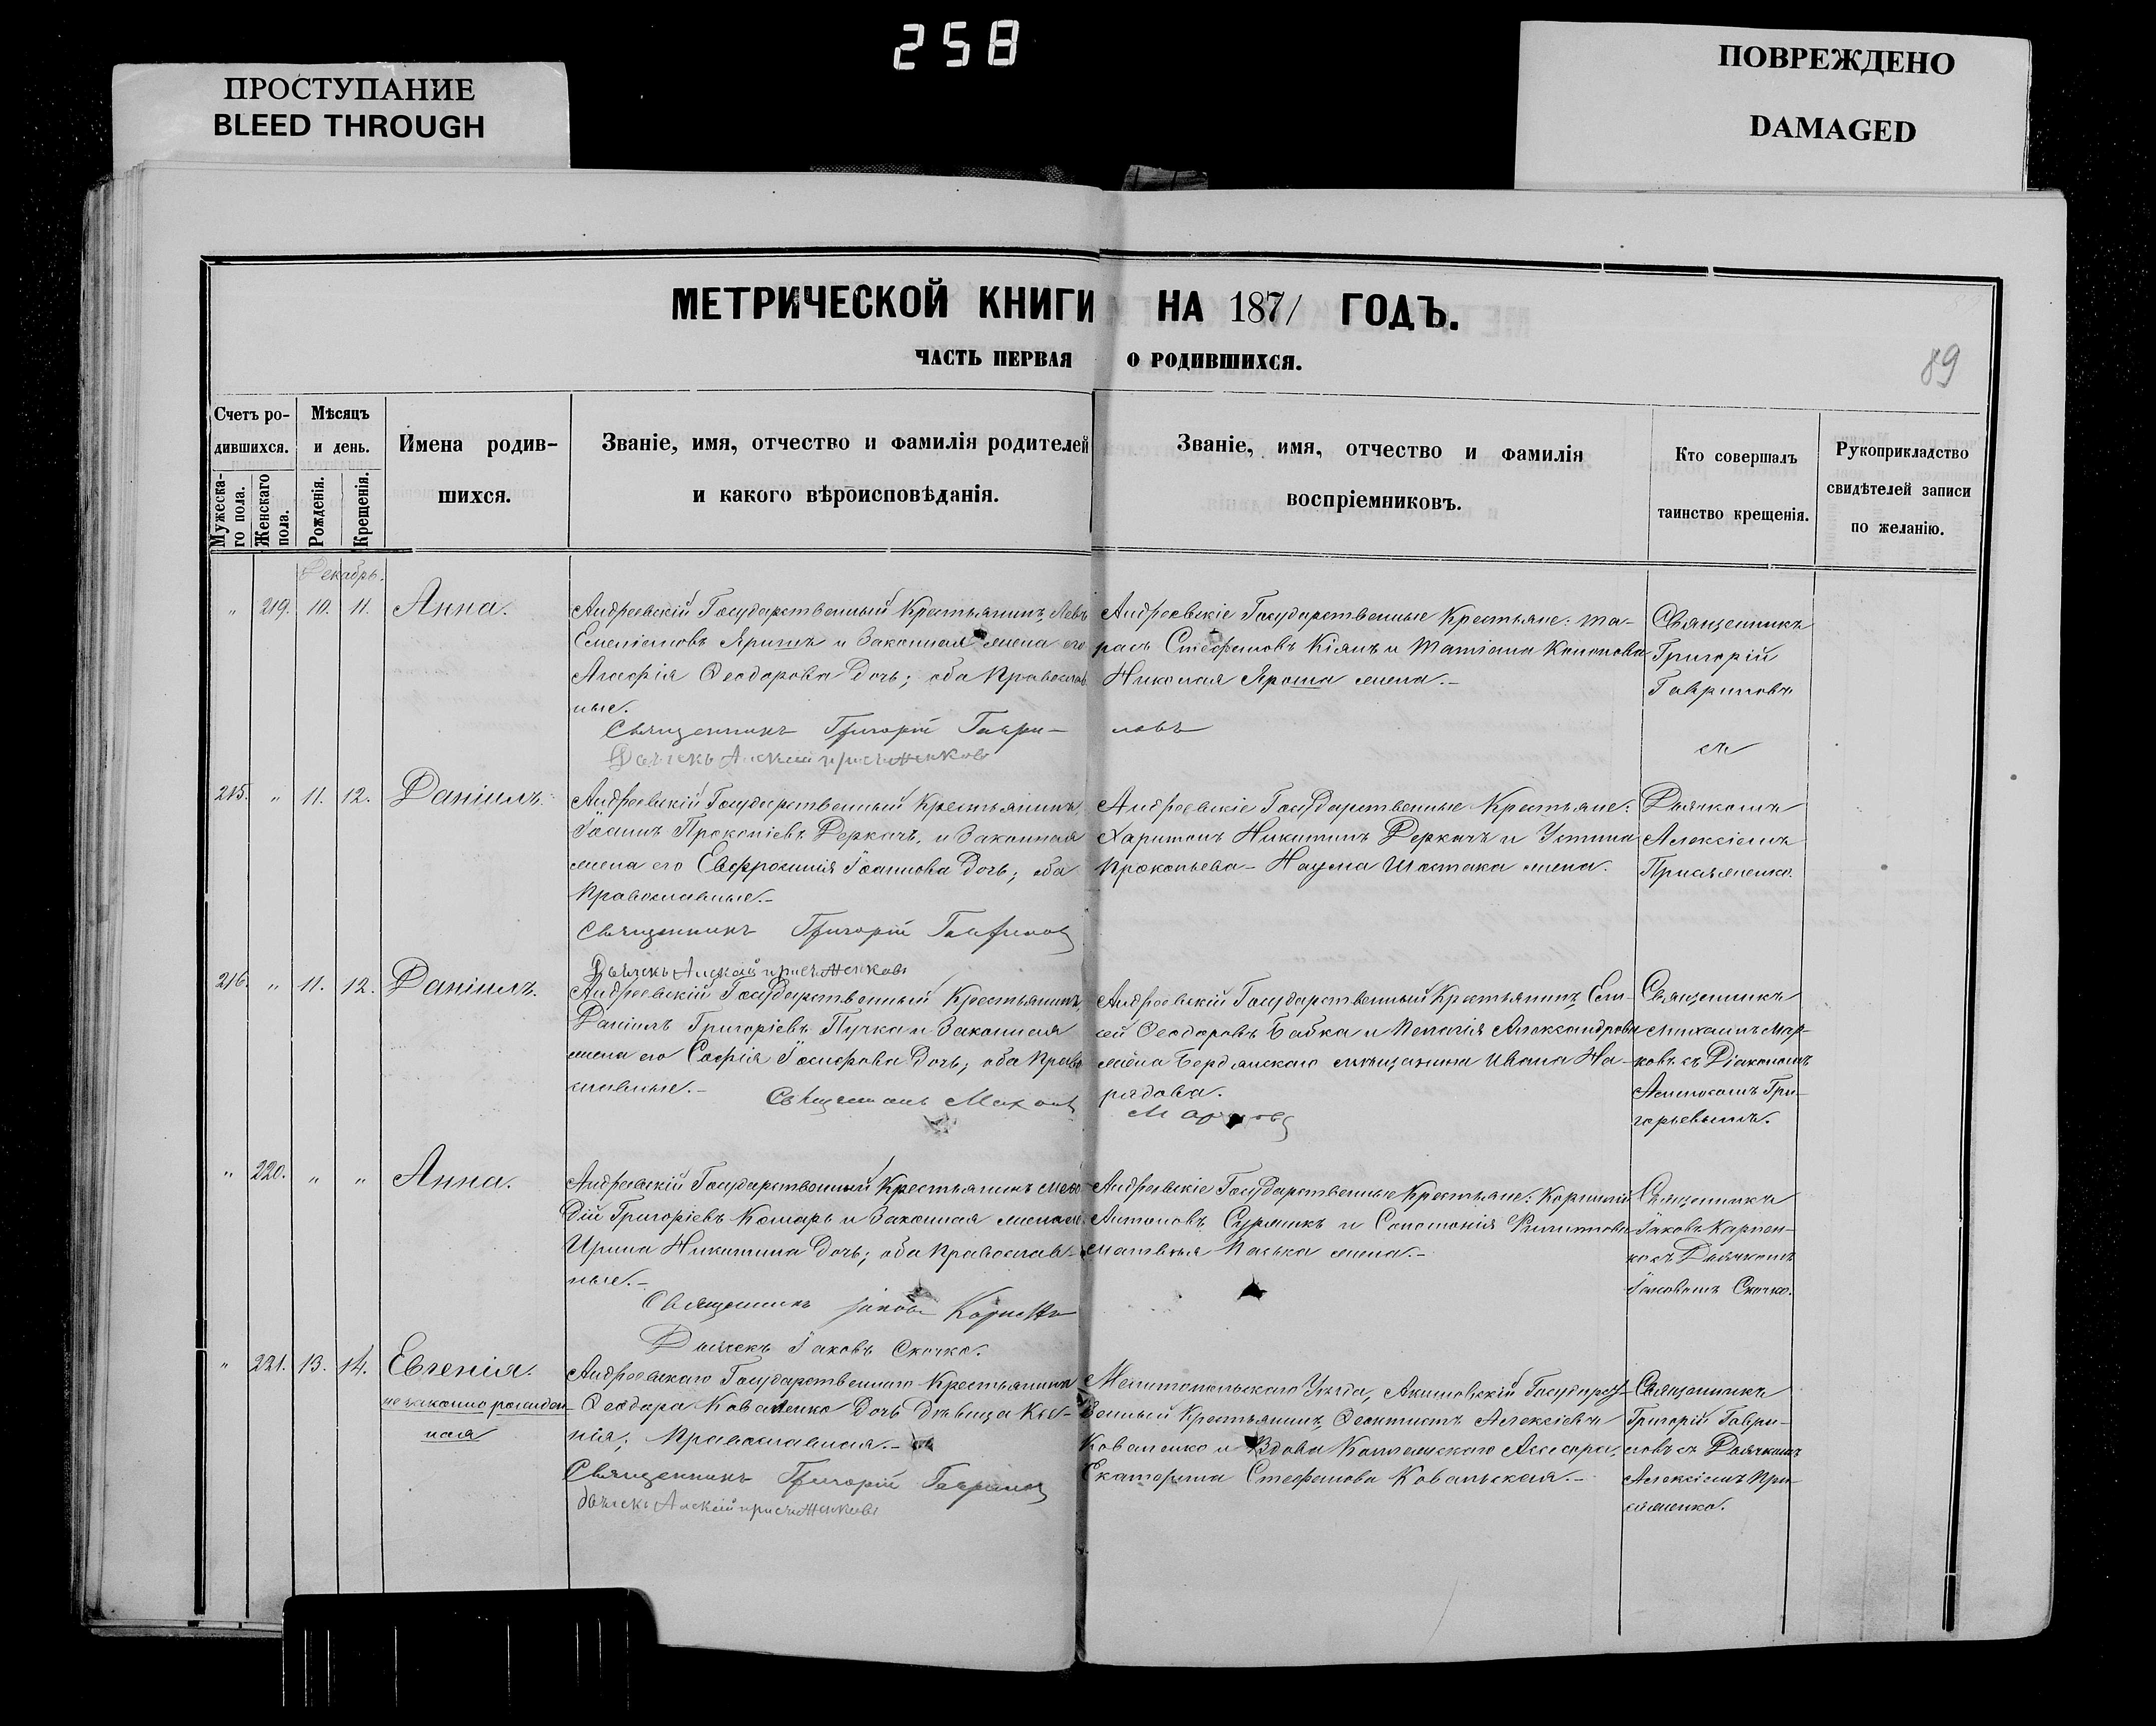 258
ПРОСТУПАНИЕ
BLEED THROUGH
ПОВРЕЖДЕНО
DAMAGED
МЕТРИЧЕСКОЙ КНИГИ НА 1871 ГОДЪ.
ЧАСТЬ ПЕРВАЯ О РОДИВШИХСЯ.
89
Счетъ ро-
дившихся.
Мужеска-
го пола.
Женскаго
пола.
Мѣсяцъ
и день.
Рожденія.
Крещенія.
Имена родив-
шихся.
Званіе, имя, отчество и фамилія родителей
и какого вѣроисповѣданія.
Званіе, имя, отчество и фамилія
воспріемниковъ.
Кто совершалъ
таинство крещенія.
Рукоприкладство
свидѣтелей записи
по желанію.
Декабрь.
" 219. 10. 11. Анна.
Андреевскій Государственный Крестьянинъ, Левъ
Емеліановъ и Законная жена его
Агафія Ѳеодорова дочь; оба Православ-
ные.
Священникъ Григорій Гаври-
ловъ
Дьячекъ
Андреевскіе Государственные Крестьяне: Та-
расъ Стефановъ Кіянъ и Татіана Кононова
Николая Яроша жена.-
Священникъ
Григорій
Гавриловъ
съ
215. " 11. 12. Даніилъ.
Андреевскій Государственный Крестьянинъ,
Іоаннъ Прокопіевъ Деркачъ, и Законная
жена его Евфросинія Іоаннова дочь; оба
Православные.-
Священникъ Григорій Гавриловъ
Дьячекъ
Андреевскіе Государственные Крестьяне:
Харитонъ Никитинъ Деркачъ и Устина
Прокопьева - Наума Шостака жена.
Дьячкомъ
Алексіемъ
Присяженко.
216. " 11. 12. Даніилъ.
Андреевскій Государственный Крестьянинъ,
Даніилъ Григоріевъ Пучка и Законная
жена его Софія Іосифова дочь; оба Право
славные.-
Священникъ
Марковъ
Андреевскій Государственный Крестьянинъ, Ели-
сей Ѳеодоровъ Бабка и Пелагія Александрова
жена Бердянскаго мѣщанина Ивана На-
рядова.
Священникъ
Михаилъ Мар-
ковъ съ Діакономъ
Григорьевымъ.
" 220. " " Анна.
Андреевскій Государственный Крестьянинъ Меѳо-
дій Григоріевъ Комарь и Законная жена его
Ирина Никитина дочь; оба Православ-
ные.-
Священникъ Іаковъ
Дьячекъ Іаковъ Скочко.
Андреевскіе Государственные Крестьяне: Корнилій
Антоновъ и Соломонія Филиппова
Матвѣя Палька жена.-
Священникъ
Іаковъ Карпен-
ко съ Дьячкомъ
Іаковомъ Скочко.
" 221. 13. 14. Евгенія.
незаконно рожден-
ная
Андреевскаго Государственнаго Крестьянина
Ѳеодора Коваленко дочь дѣвица Ксе-
нія; Православная.-
Священникъ Григорій Гавриловъ
дьячекъ
Мелитопольскаго Уѣзда, Акимовскій Государст-
венный Крестьянинъ, Ѳеоктистъ Алексіевъ
Коваленко и Вдова Коллежскаго Асесора,
Екатерина Стефанова Ковальская.-
Священникъ
Григорій Гаври-
ловъ съ Дьячкомъ
Алексіемъ При-
сяженко.